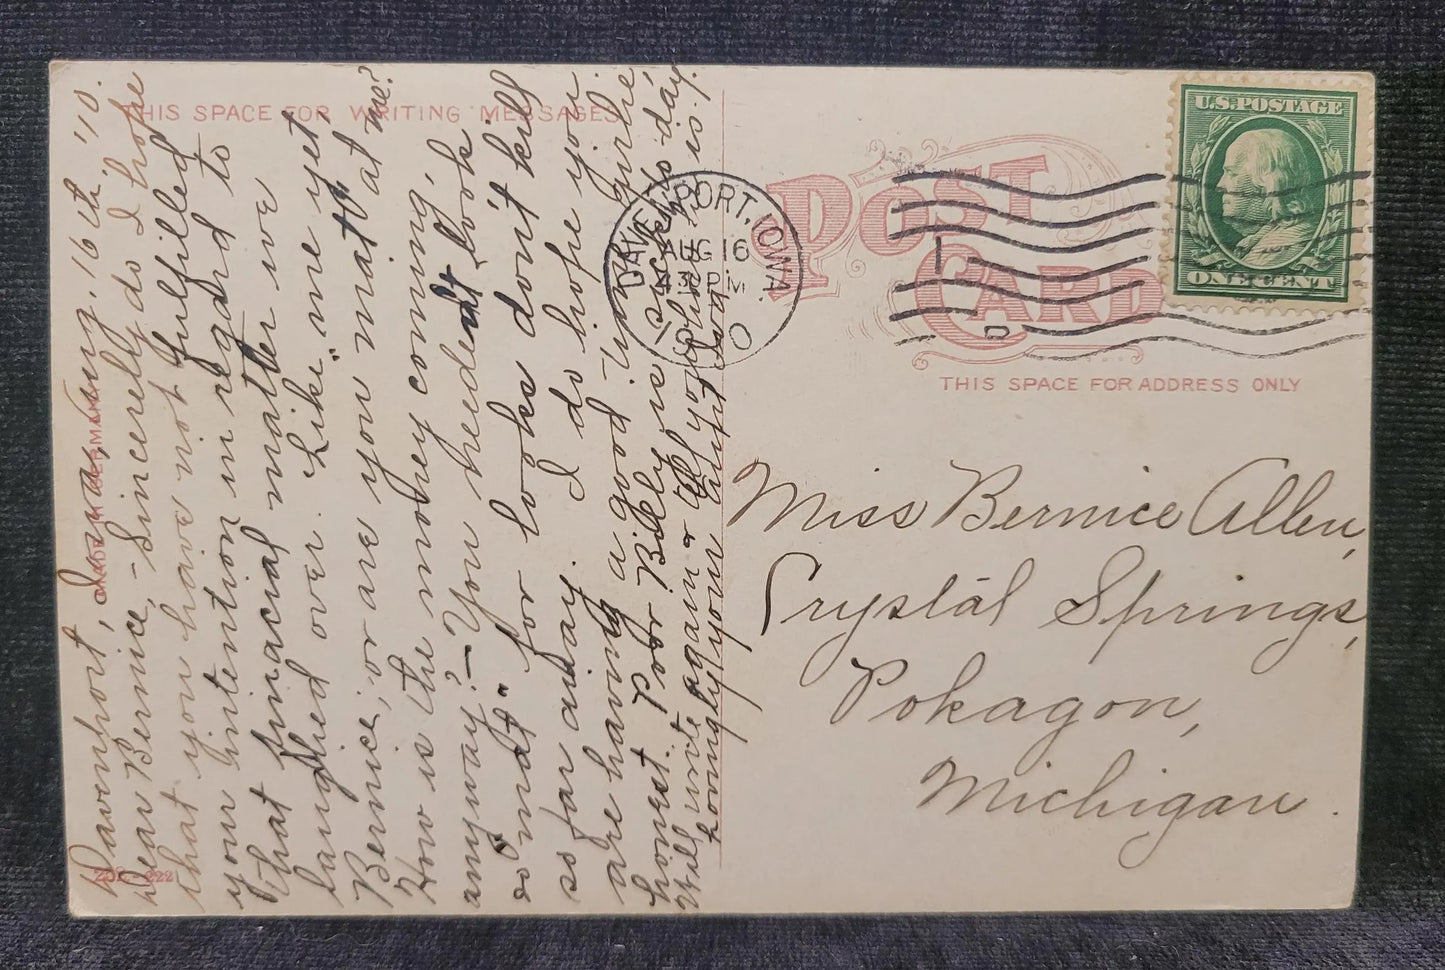 THIS SPACE FOR WRITING MESSAGES
POST CARD
THIS SPACE FOR ADDRESS ONLY
U.S. POSTAGE
ONE CENT
DAVENPORT, IOWA
AUG 16
PM
Davenport, Iowa, Aug, 16th '10.
Dear Bernice, - Sincerely do I hope
that you have not fulfilled
your intention in regard to
that finacial matter we
laughed over. Like me yet
Bernice, or are you mat" at me?
How is the money coming,
anyway? - You needent look
so mat" for looks don't kill
so far away. I do hope you
are having a good time girlie,
honest. Poor Billy is sick to day.
Will write again &
Lovingly your
Miss Bernice Allen,
Crystal Springs,
Pokagon,
Michigan.
MADE IN GERMANY
222